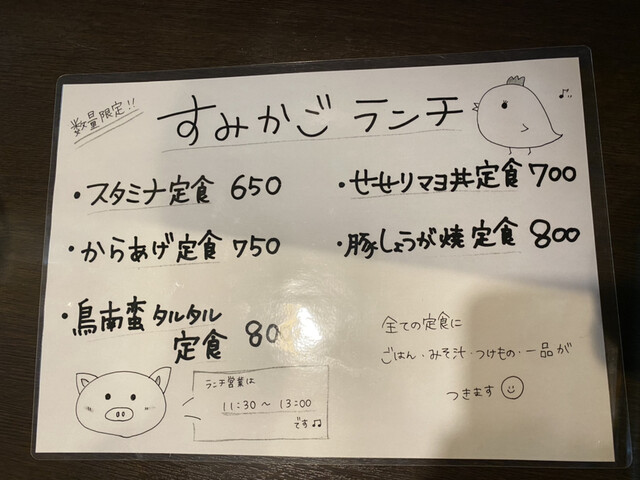 数量限定!!
すみかごランチ
・スタミナ定食 650
・せせりマヨ丼定食 700
・からあげ定食 750
・豚しょうが焼定食 800
・鳥南蛮タルタル
定食 80
全ての定食に
ごはん・みそ汁・つけもの・一品が
つきます
ランチ営業は
11:30〜13:00
です♫